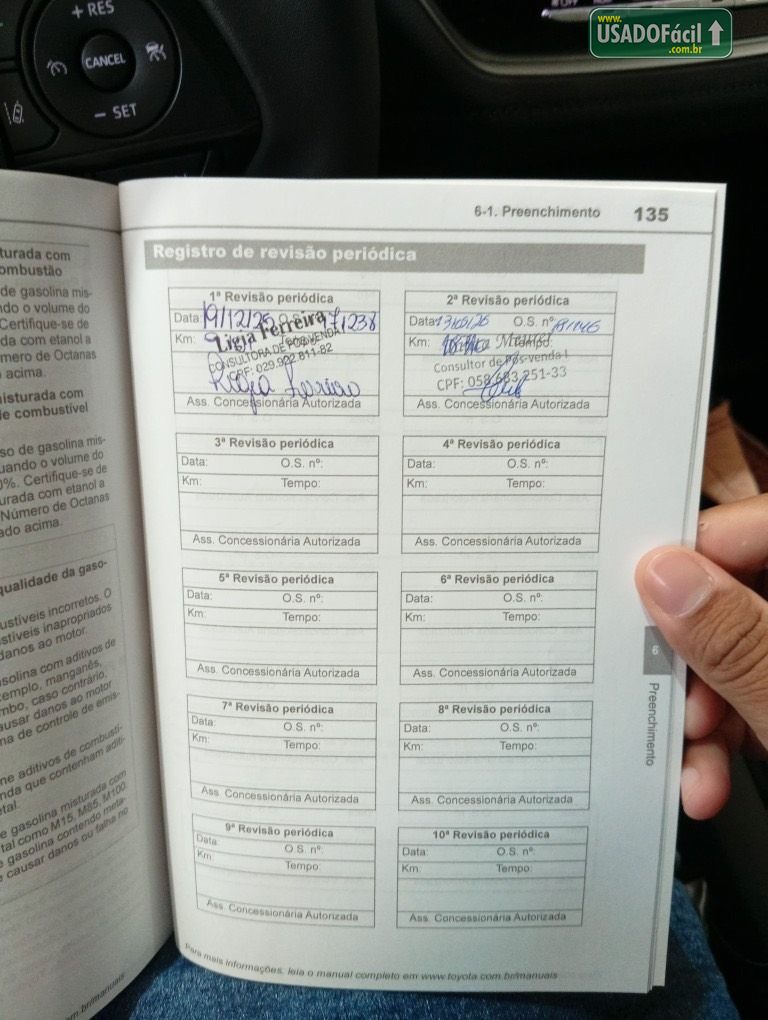 + RES
CANCEL
- SET
www.
USADOFácil
.com.br
6-1. Preenchimento 135
Registro de revisão periódica
1ª Revisão periódica
Data: 19/12/25 O.S. 171238
Km:
Ligia Ferreira
CONSULTORA DE PÓS-VENDA
CPF: 029.922.811-82
Ass. Concessionária Autorizada
2ª Revisão periódica
Data: O.S. nº
Km: Tempo:
Consultor de Pós-venda I
CPF: 058.683.251-33
Ass. Concessionária Autorizada
3ª Revisão periódica
Data: O.S. nº:
Km: Tempo:
Ass. Concessionária Autorizada
4ª Revisão periódica
Data: O.S. nº:
Km: Tempo:
Ass. Concessionária Autorizada
5ª Revisão periódica
Data: O.S. nº:
Km: Tempo:
Ass. Concessionária Autorizada
6ª Revisão periódica
Data: O.S. nº:
Km: Tempo:
Ass. Concessionária Autorizada
7ª Revisão periódica
Data: O.S. nº:
Km: Tempo:
Ass. Concessionária Autorizada
8ª Revisão periódica
Data: O.S. nº:
Km: Tempo:
Ass. Concessionária Autorizada
9ª Revisão periódica
Data: O.S. nº:
Km: Tempo:
Ass. Concessionária Autorizada
10ª Revisão periódica
Data: O.S. nº:
Km: Tempo:
Ass. Concessionária Autorizada
6
Preenchimento
Para mais informações, leia o manual completo em www.toyota.com.br/manuais
turada com
ombustão
de gasolina mis-
ndo o volume do
Certifique-se de
da com etanol a
mero de Octanas
acima.
misturada com
de combustível
so de gasolina mis-
uando o volume do
0%. Certifique-se de
urada com etanol a
Número de Octanas
ado acima.
qualidade da gaso-
bustíveis incorretos. O
stíveis inapropriados
danos ao motor.
solina com aditivos de
xemplo, manganês,
mbo, caso contrário,
ausar danos ao motor
ma de controle de emis-
ne aditivos de combustí-
nda que contenham aditi-
etal.
e gasolina misturada com
tal como M15, M85, M100.
e gasolina contendo meta-
e causar danos ou falha no
om.br/manuais